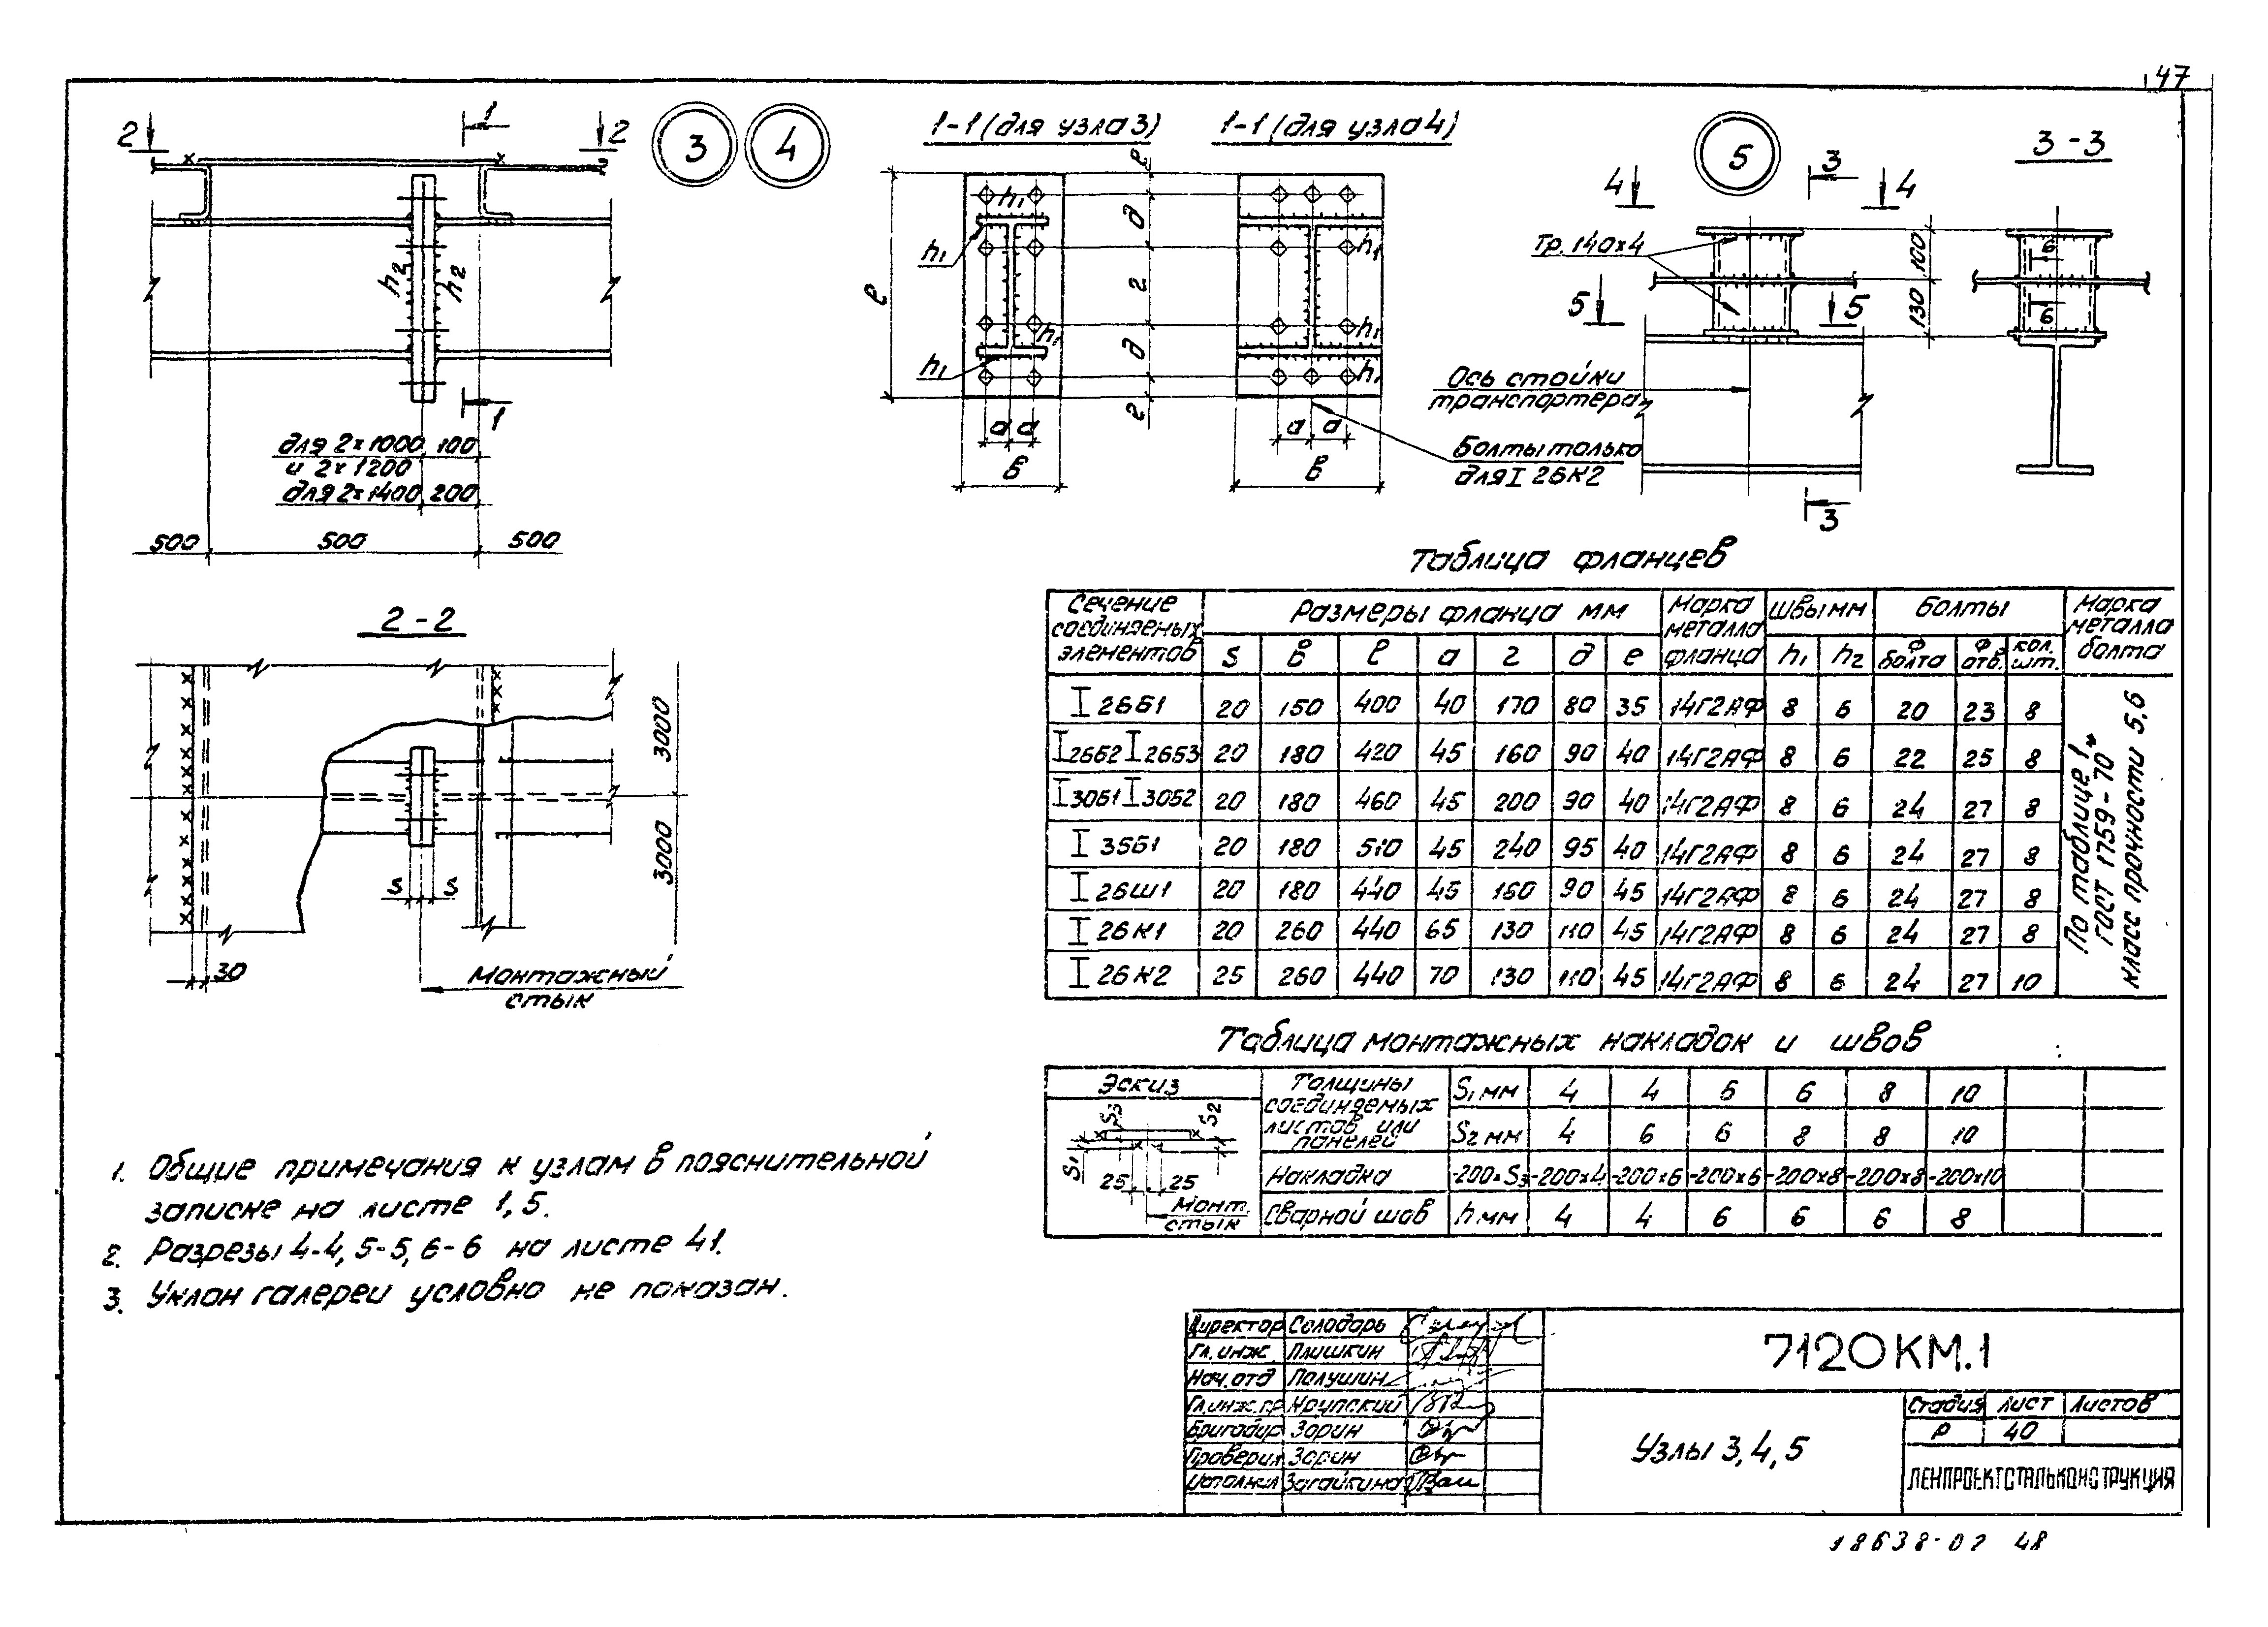 47
2
1
2
3
4
h₂
h₂
1
для 2×1000 100
и 2×1200
для 2×1400 200
500 500 500
1-1 (для узла 3)
1-1 (для узла 4)
е
h₁
h₁
h₁
h₁
h₁
h₁
ℓ
д
г
д
г
а а
а а
в
в
Болты только
для I 26К2
5
3
3-3
4
4
Тр. 140×4
5
5
100
130
6
6
Ось стойки
транспортера
3
2-2
3000
3000
S S
30
Монтажный
стык
Таблица фланцев
Сечение соединяемых элементов | Размеры фланца мм | Марка металла фланца | Швы мм | Болты | Марка металла болта
S в ℓ а г д е h₁ h₂ Ф болта Ф отв. кол. шт.
I 26Б1 20 150 400 40 170 80 35 14Г2АФ 8 6 20 23 8
I 26Б2 I 26Б3 20 180 420 45 160 90 40 14Г2АФ 8 6 22 25 8
I 30Б1 I 30Б2 20 180 460 45 200 90 40 14Г2АФ 8 6 24 27 8
I 35Б1 20 180 510 45 240 95 40 14Г2АФ 8 6 24 27 8
I 26Ш1 20 180 440 45 160 90 45 14Г2АФ 8 6 24 27 8
I 26К1 20 260 440 65 130 110 45 14Г2АФ 8 6 24 27 8
I 26К2 25 260 440 70 130 110 45 14Г2АФ 8 6 24 27 10
По таблице 1
ГОСТ 1759-70*
класс прочности 5.6
Таблица монтажных накладок и швов
Эскиз
S₃ S₂
S₁
25 25
Монт.
стык
Толщины соединяемых листов или панелей
S₁ мм 4 4 6 6 8 10
S₂ мм 4 6 6 8 8 10
Накладка -200×S₃ -200×4 -200×6 -200×6 -200×8 -200×8 -200×10
Сварной шов h мм 4 4 6 6 6 8
1. Общие примечания к узлам в пояснительной
записке на листе 1,5.
2. Разрезы 4-4, 5-5, 6-6 на листе 41.
3. Уклон галереи условно не показан.
Директор Солодарь
Гл. инж. Плишкин
Нач. отд Полушин
Гл. инж. пр Крупский
Бригадир Зорин
Проверил Зорин
Исполнил Загайкина
7120КМ.1
Узлы 3, 4, 5
Стадия Лист Листов
Р 40
ЛЕНПРОЕКТСТАЛЬКОНСТРУКЦИЯ
18638-02 48